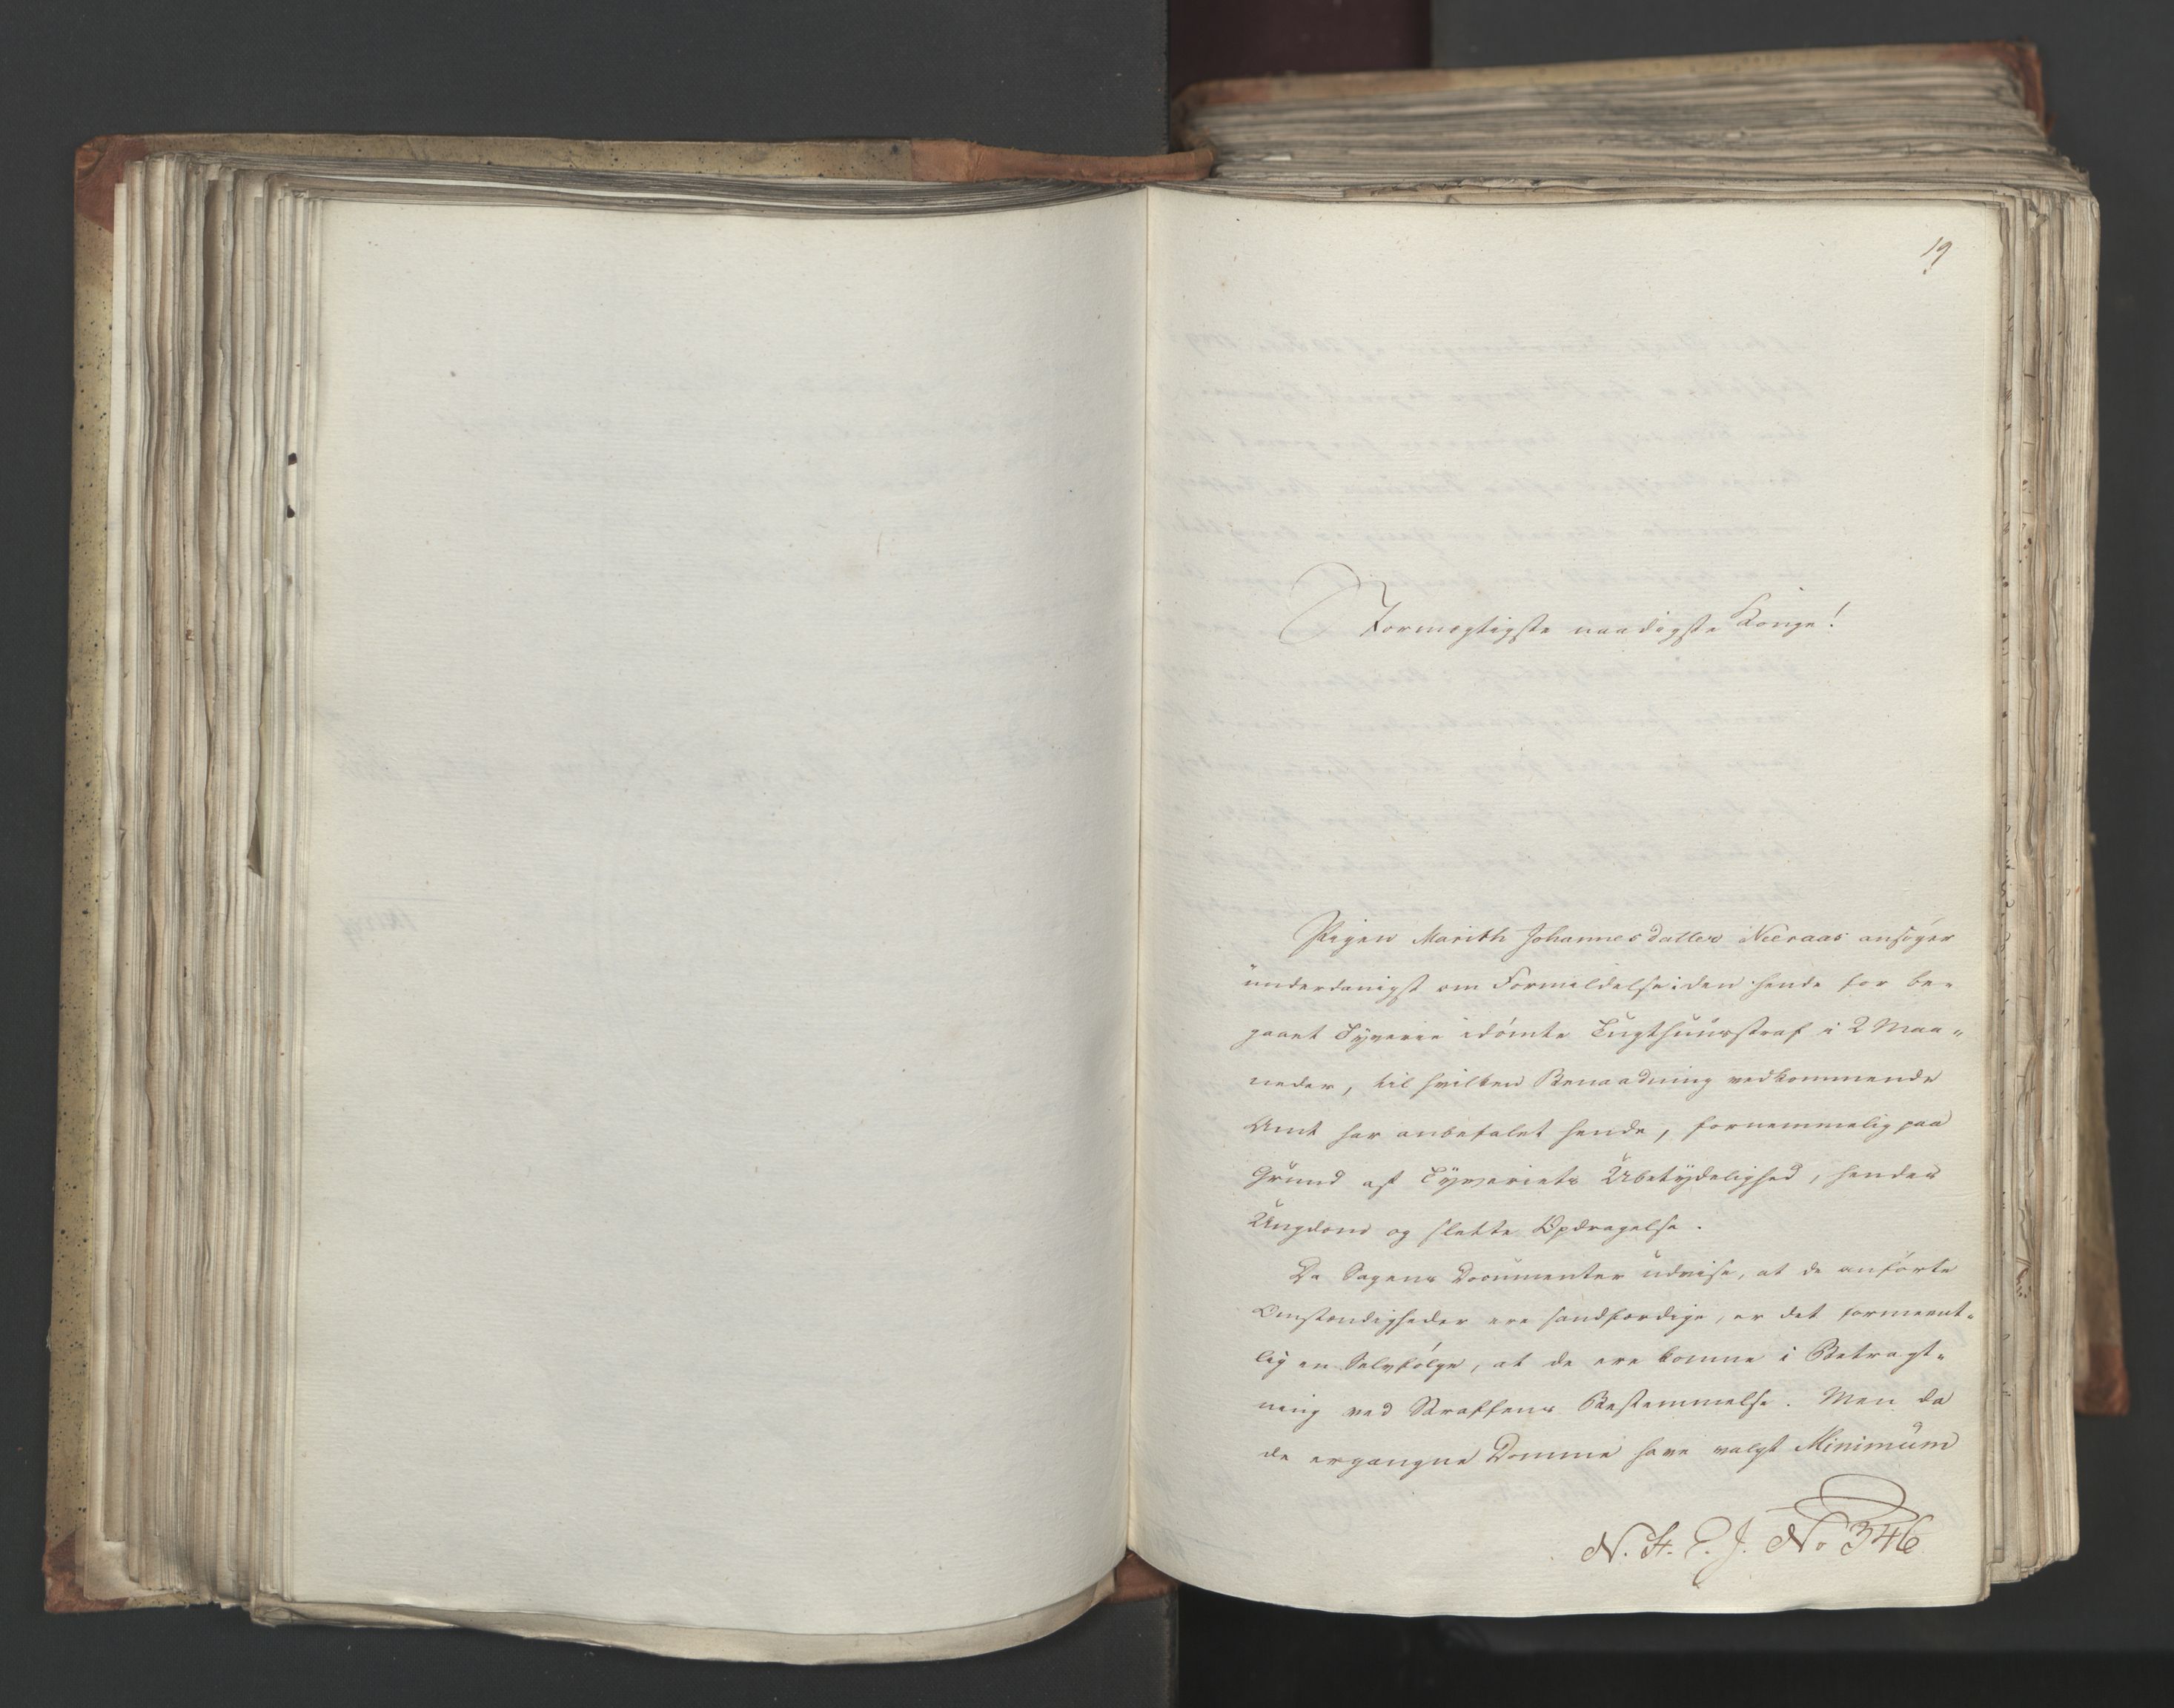 19
Stormægtigste naadigste Konge!
Pigen Marith Johannesdatter Neeraas ansøger
underdanigst om Formildelse i den hende for be-
gaaet Tyverie idømte Tugthuusstraf i 2 Maa-
neder, til hvilken Benaadning vedkommende
Amt har anbefalet hende, fornemmelig paa
Grund af Tyveriets Ubetydelighed, hendes
Ungdom og slette Opdragelse.
Da Sagens Documenter udvise, at de anførte
Omstændigheder ere sandfærdige, er det formeent-
lig en Selvfølge, at de ere komne i Betragt-
ning ved Straffens Bestemmelse. Men da
de ergangne Domme have valgt Minimum
N. St. E. J. No 346